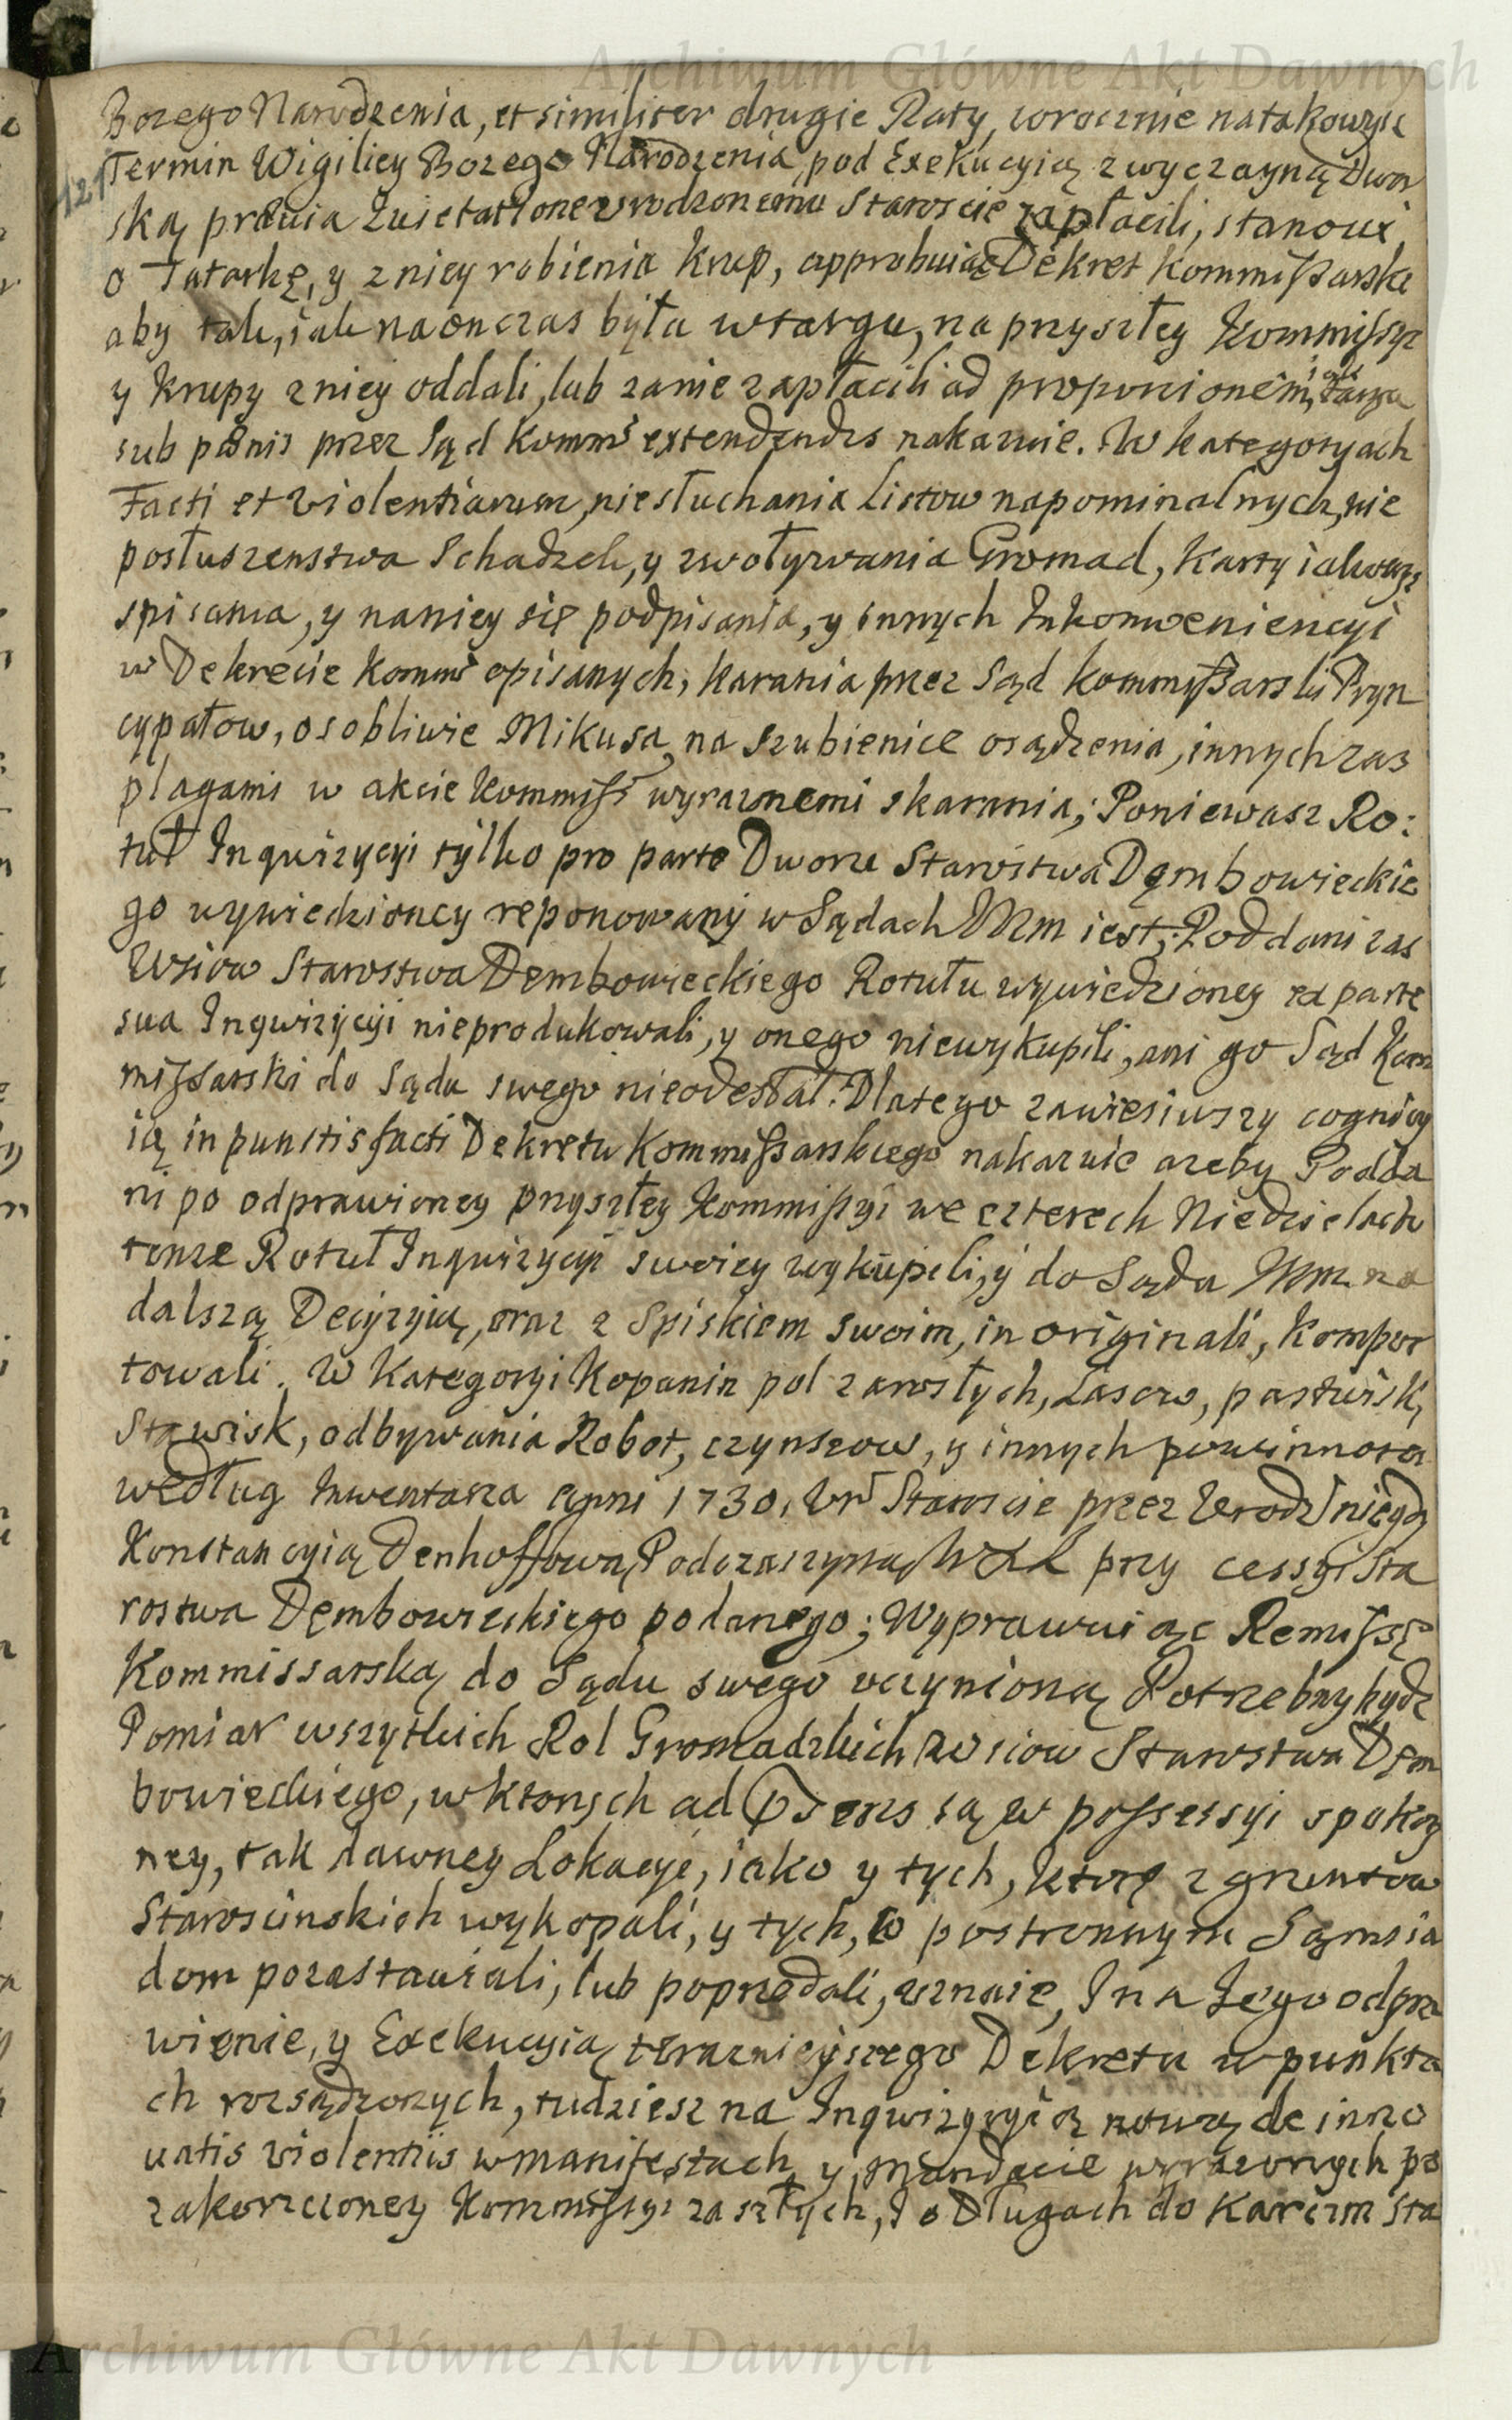 Archiwum Główne Akt Dawnych
Bozego Narodzenia, et similiter drugie Raty, wrocznie natakowysz
121
Termin Wigiliey Bozego Narodzenia, pod Exekucyią zwyczayną Dwor
ską prawia urodzonemu Staroscie zapłacili, stanowi
o Tatarkę, y zniey robienia Krup, approbuiąc Dekret Kommissarski
aby tak, iak naonczas była wtargu, na przyszłey Kommissyi
y Krupy zniey oddali, lub zanie zapłacili ad proportionem, iak targu
sub pœnis przez Sąd Komms extendendis nakazuie. W kategoryach
Facti et Violentiarum, niesłuchania Listow napominalnych, nie
posłuszenstwa Schadzek, y zwoływania Gromad, Karty iakowezs
spisania, y naniey się podpisania, y innych Inkonweniencyi
w Dekrecie Komms opisanych, karania przez Sąd Kommissarski Pryn
cypałow, osobliwie Mikusa, na szubienice osądzenia, innych zas
plagami w akcie Kommiss wyraznemi skarania; Poniewasz Ro:
tuł Inqwizycyi tylko pro parte Dworu Starostwa Dęmbowieckie
go wywiedzioney reponowany w Sądach Nm iest; Poddani zas
Wsiow Starostwa Dembowieckiego Rotułu wywiedzioney ex parte
sua Ingwizycyi nieprodukowali, y onego niewykupili, ani go Sąd Kom
missarski do Sądu swego nieodesłał. Dlatego zawiesiwszy cognicy
ią in punctis facti Dekretu Kommissarskiego nakazuie azeby Podda
ni po odprawioney przyszłey Kommissyi we czterech Niedzielach
tenze Rotuł Inqwizycyi swoiey wykupili, y do Sądu Nm na
dalszą Decyzyią, oraz z Spiskiem swoim, in originali, kompor
towali. W Kategoryi Kopanin pol zarosłych, Lasow, pastwisk,
Stawisk, odbywania Robot, czynszow, y innych powinnosci
według Inwentarza Anni 1730. Ur Staroscie przez Urodz niegdy
Konstancyią Denhoffową Podczaszyną WXL przy cessyi Sta
rostwa Dęmbowieckiego podanego; Wyprawuiąc Remissę
Kommissarską do Sądu swego uczynioną Potrzebny bydz
Pomiar wszytkich Rol Gromadzkich Wsiow Starostwa Dęm
bowieckiego, wktorych ad præsens są w possessyi spokoy
ney, tak dawney Lokacyi, iako y tych, ktore z gruntow
Staroscinskich wykopali, y tych, co postronnym Sąmsia
dom pozastawiali, lub poprzedali, uznaie, I na Jego odpra
wienie, y Exekucyią teraznieyszego Dekretu w punkta
ch rozsądzonych, tudziesz na Inqwizycyią nową de inno
uatis violentiis wmanifestach y Mandacie wyrazonych po
zakonczoney Kommissyi zaszłych, I o Długach do Karczm Sta
Archiwum Główne Akt Dawnych